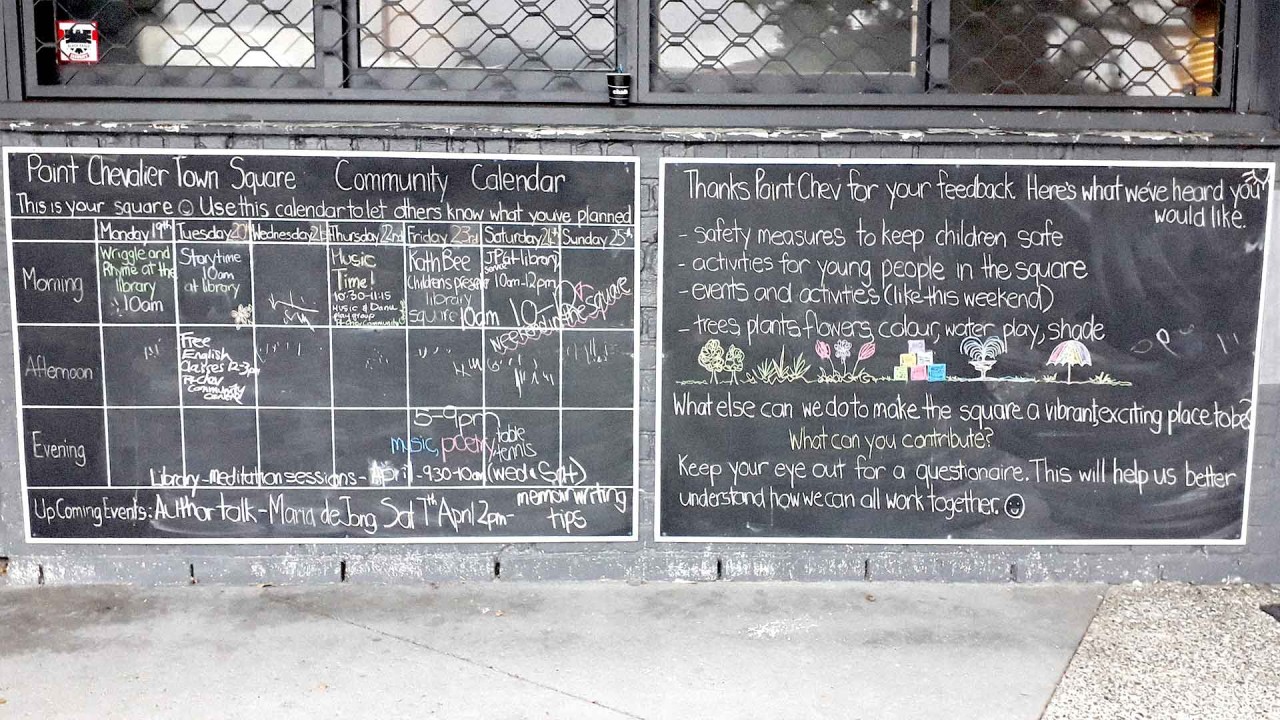 Point Chevalier Town Square Community Calendar
This is your square ☺ Use this calendar to let others know what youve planned
Monday 19th Tuesday 20th Wednesday 21st Thursday 22nd Friday 23rd Saturday 24th Sunday 25th
Morning
Wriggle and
Rhyme at the
library
10am
Storytime
10am
at library
Music
Time!
10:30-11:15
Music & Dance
play group
Pt Chev Community
Kath Bee
Childrens
library
square 10am
JP at library
service
10am-12pm
the square
Afternoon
Free
English
Classes 12-3pm
Pt chev
Community
centre
Evening
5-9pm
music, poetry, table
tennis
Library-Meditation sessions - April - 9.30-10am (wed & Sat)
Up Coming Events: Author talk - Maria de Jong Sat 7th April 2pm - memoir writing
tips
Thanks Point Chev for your feedback. Here's what we've heard you
would like.
- safety measures to keep children safe
- activities for young people in the square
- events and activities (like this weekend)
- trees, plants, flowers, colour, water, play, shade
What else can we do to make the square a vibrant, exciting place to be?
What can you contribute?
Keep your eye out for a questionaire. This will help us better
understand how we can all work together. ☺